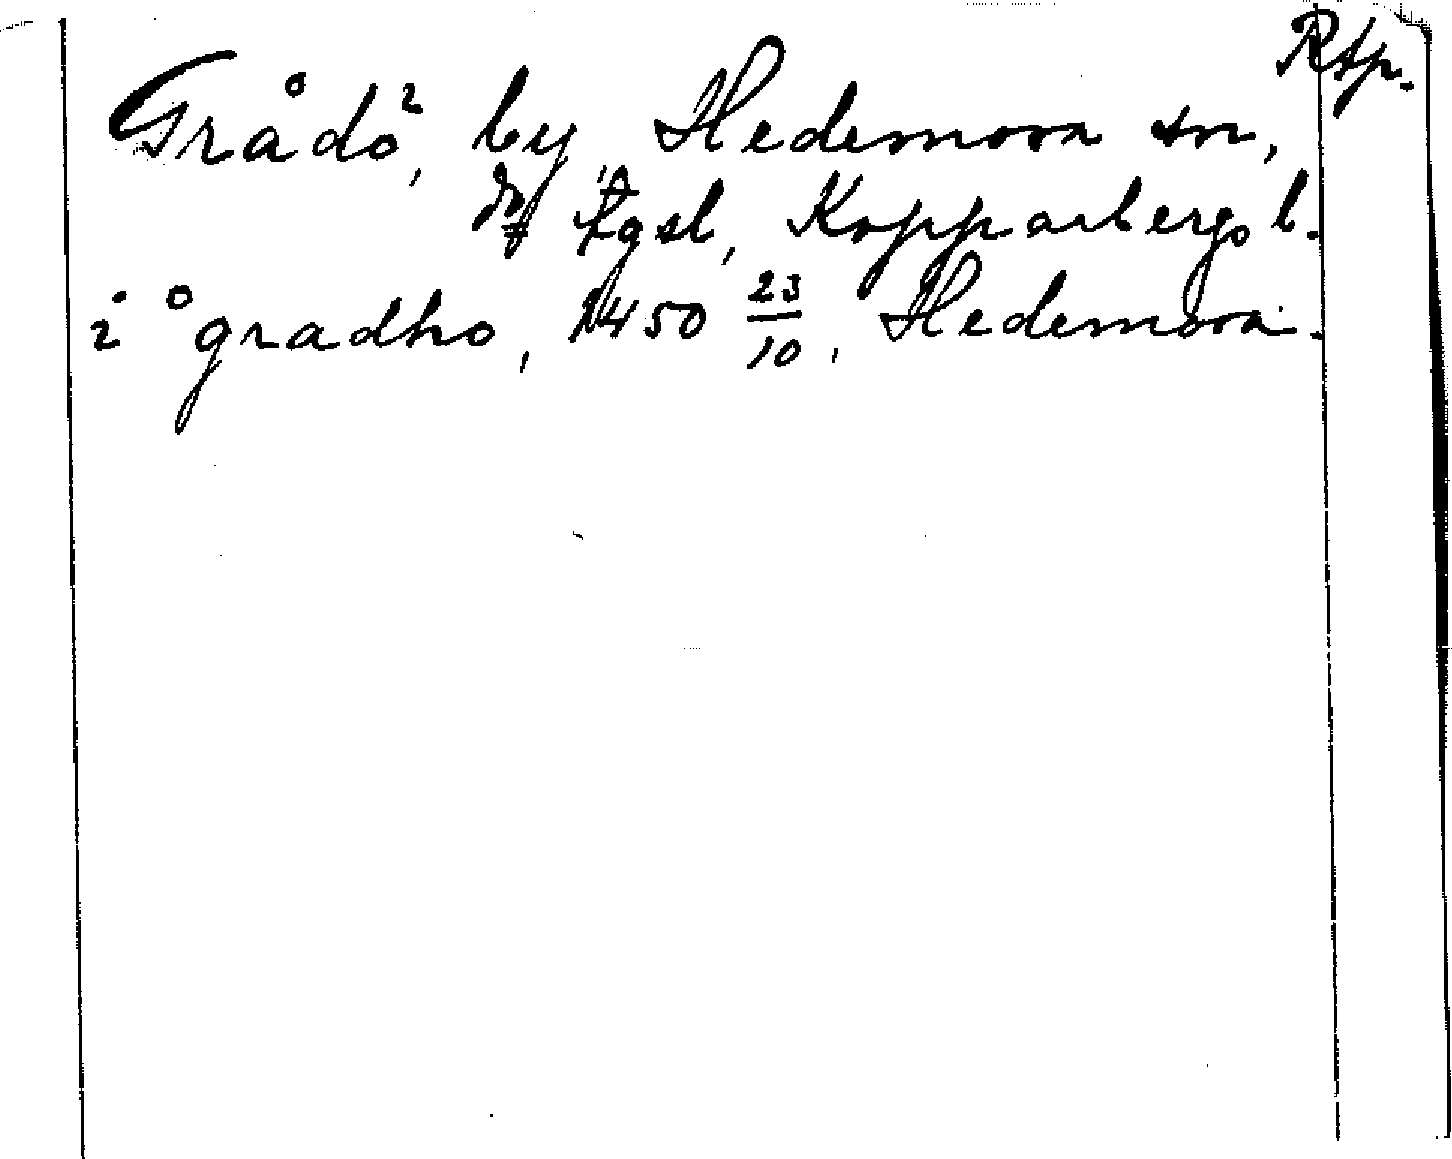 Rtp.
Grådö, by, Hedemora sn,
tgsl, Kopparbergs l.
i °gradho, 1450 23/10, Hedemora.